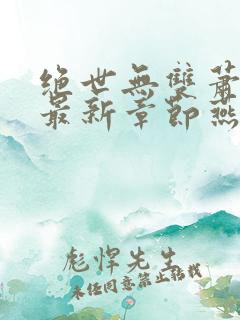 絕世無雙蕭
最新章節燕
彪悍先生
未经同意禁止转载